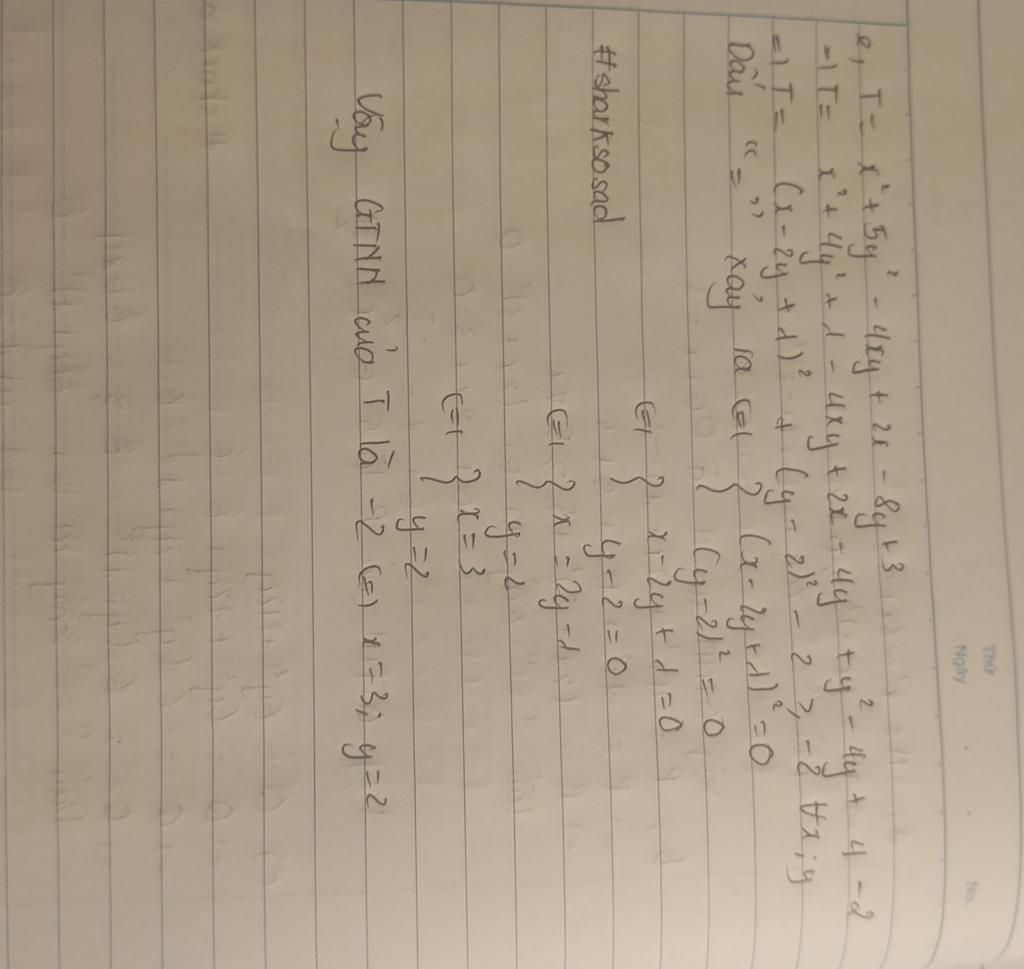 Thứ
Ngày
No.
e, T = x² + 5y² - 4xy + 2x - 8y + 3
=> T = x² + 4y² + 1 - 4xy + 2x - 4y + y² - 4y + 4 - 2
=> T = (x - 2y + 1)² + (y - 2)² - 2 ≥ -2 ∀x;y
Dấu "=" xảy ra <=> { (x - 2y + 1)² = 0
(y - 2)² = 0
<=> { x - 2y + 1 = 0
y - 2 = 0
#sharksosad
<=> { x = 2y - 1
y = 2
<=> { x = 3
y = 2
Vậy GTNN của T là -2 <=> x = 3; y = 2